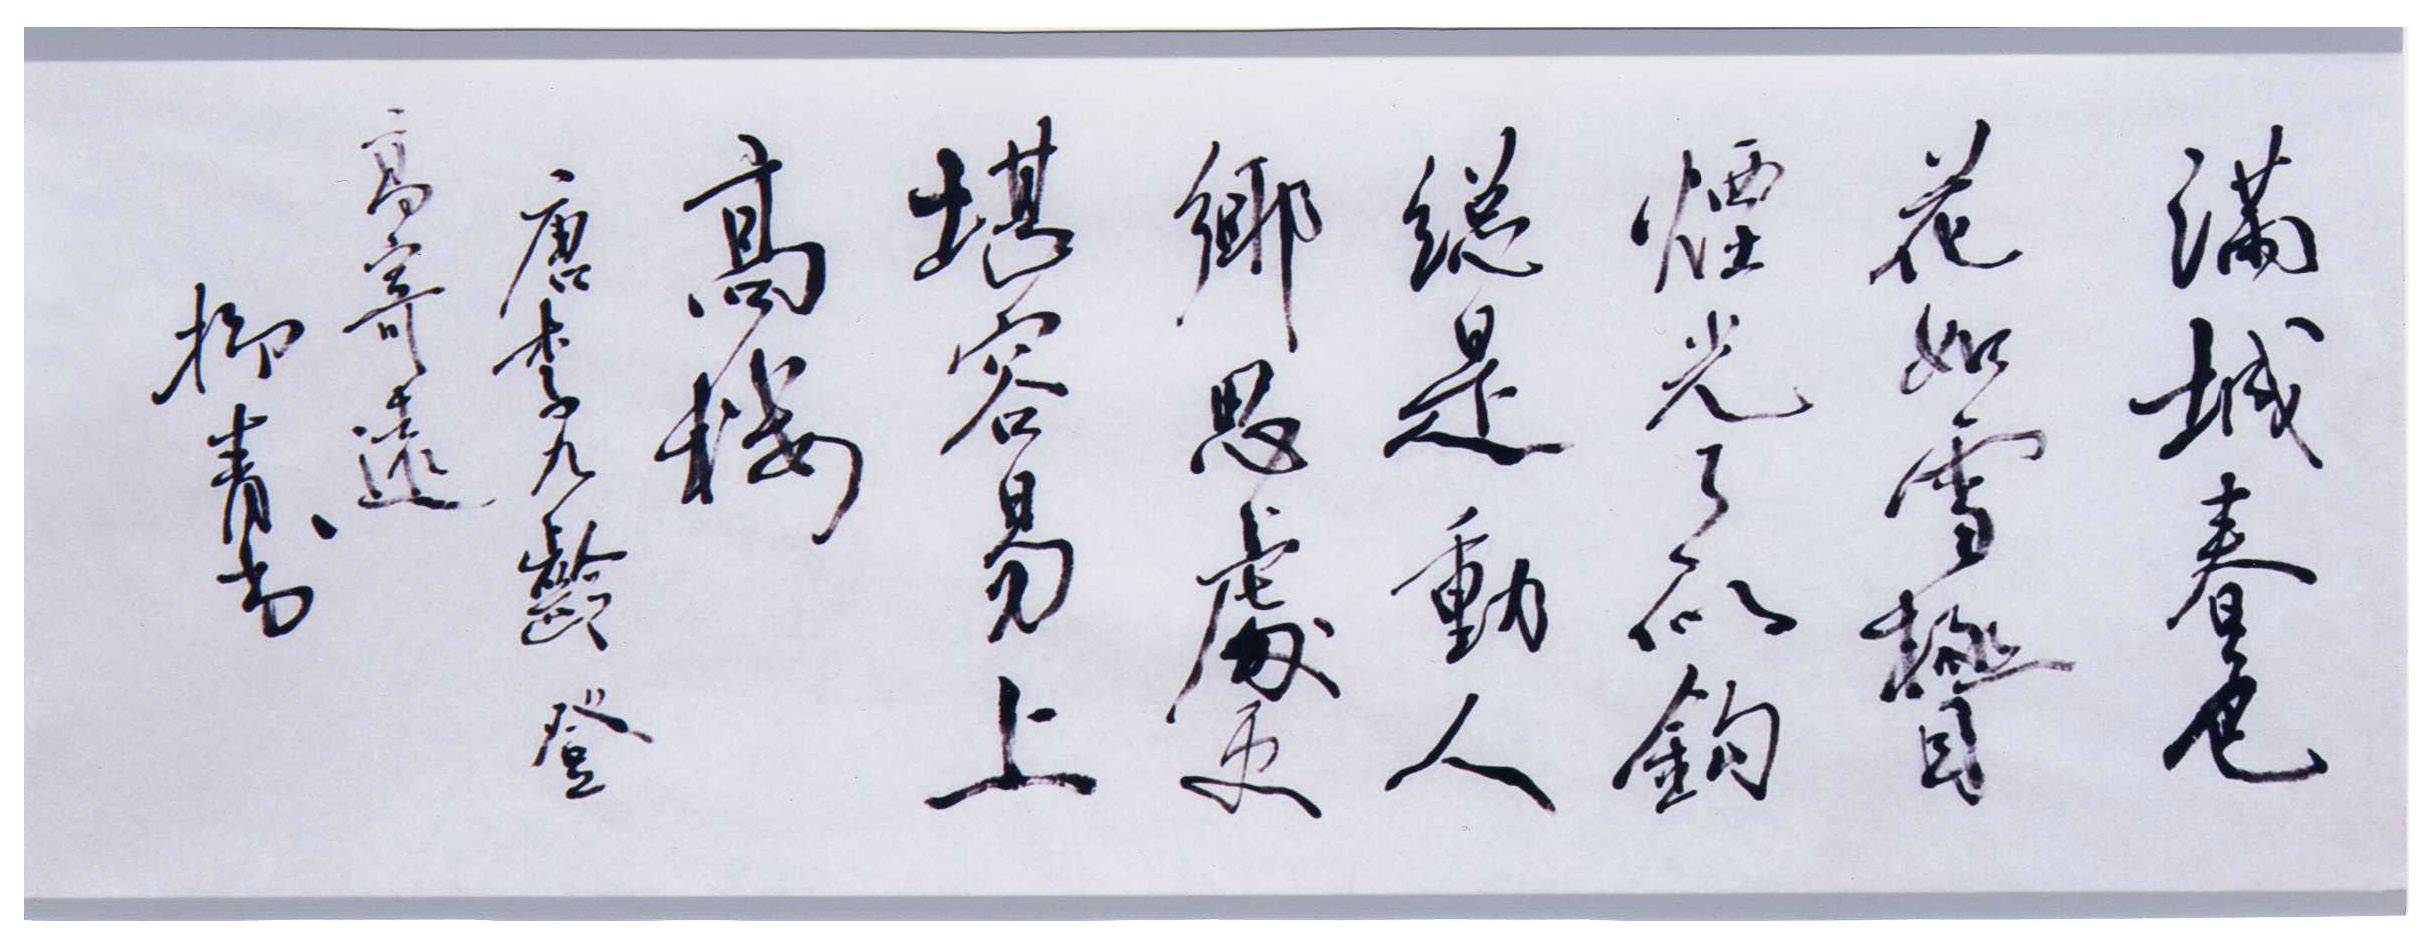 滿城春色
花如雪極目
煙光月似鈎
總是動人
鄉思處更
堪容易上
高樓
唐李九齡 登
高寄遠
柳青書